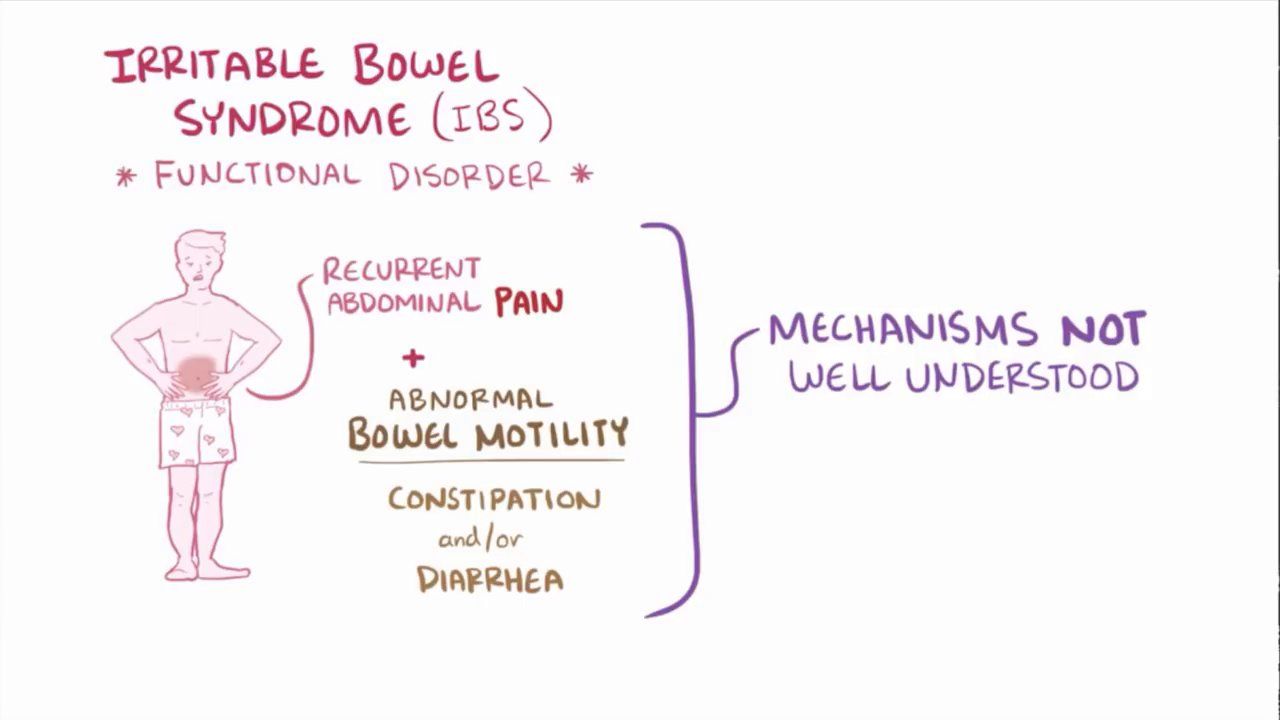 IRRITABLE BOWEL
SYNDROME (IBS)
* FUNCTIONAL DISORDER *
RECURRENT
ABDOMINAL PAIN
+
ABNORMAL
BOWEL MOTILITY
CONSTIPATION
and/or
DIARRHEA
MECHANISMS NOT
WELL UNDERSTOOD